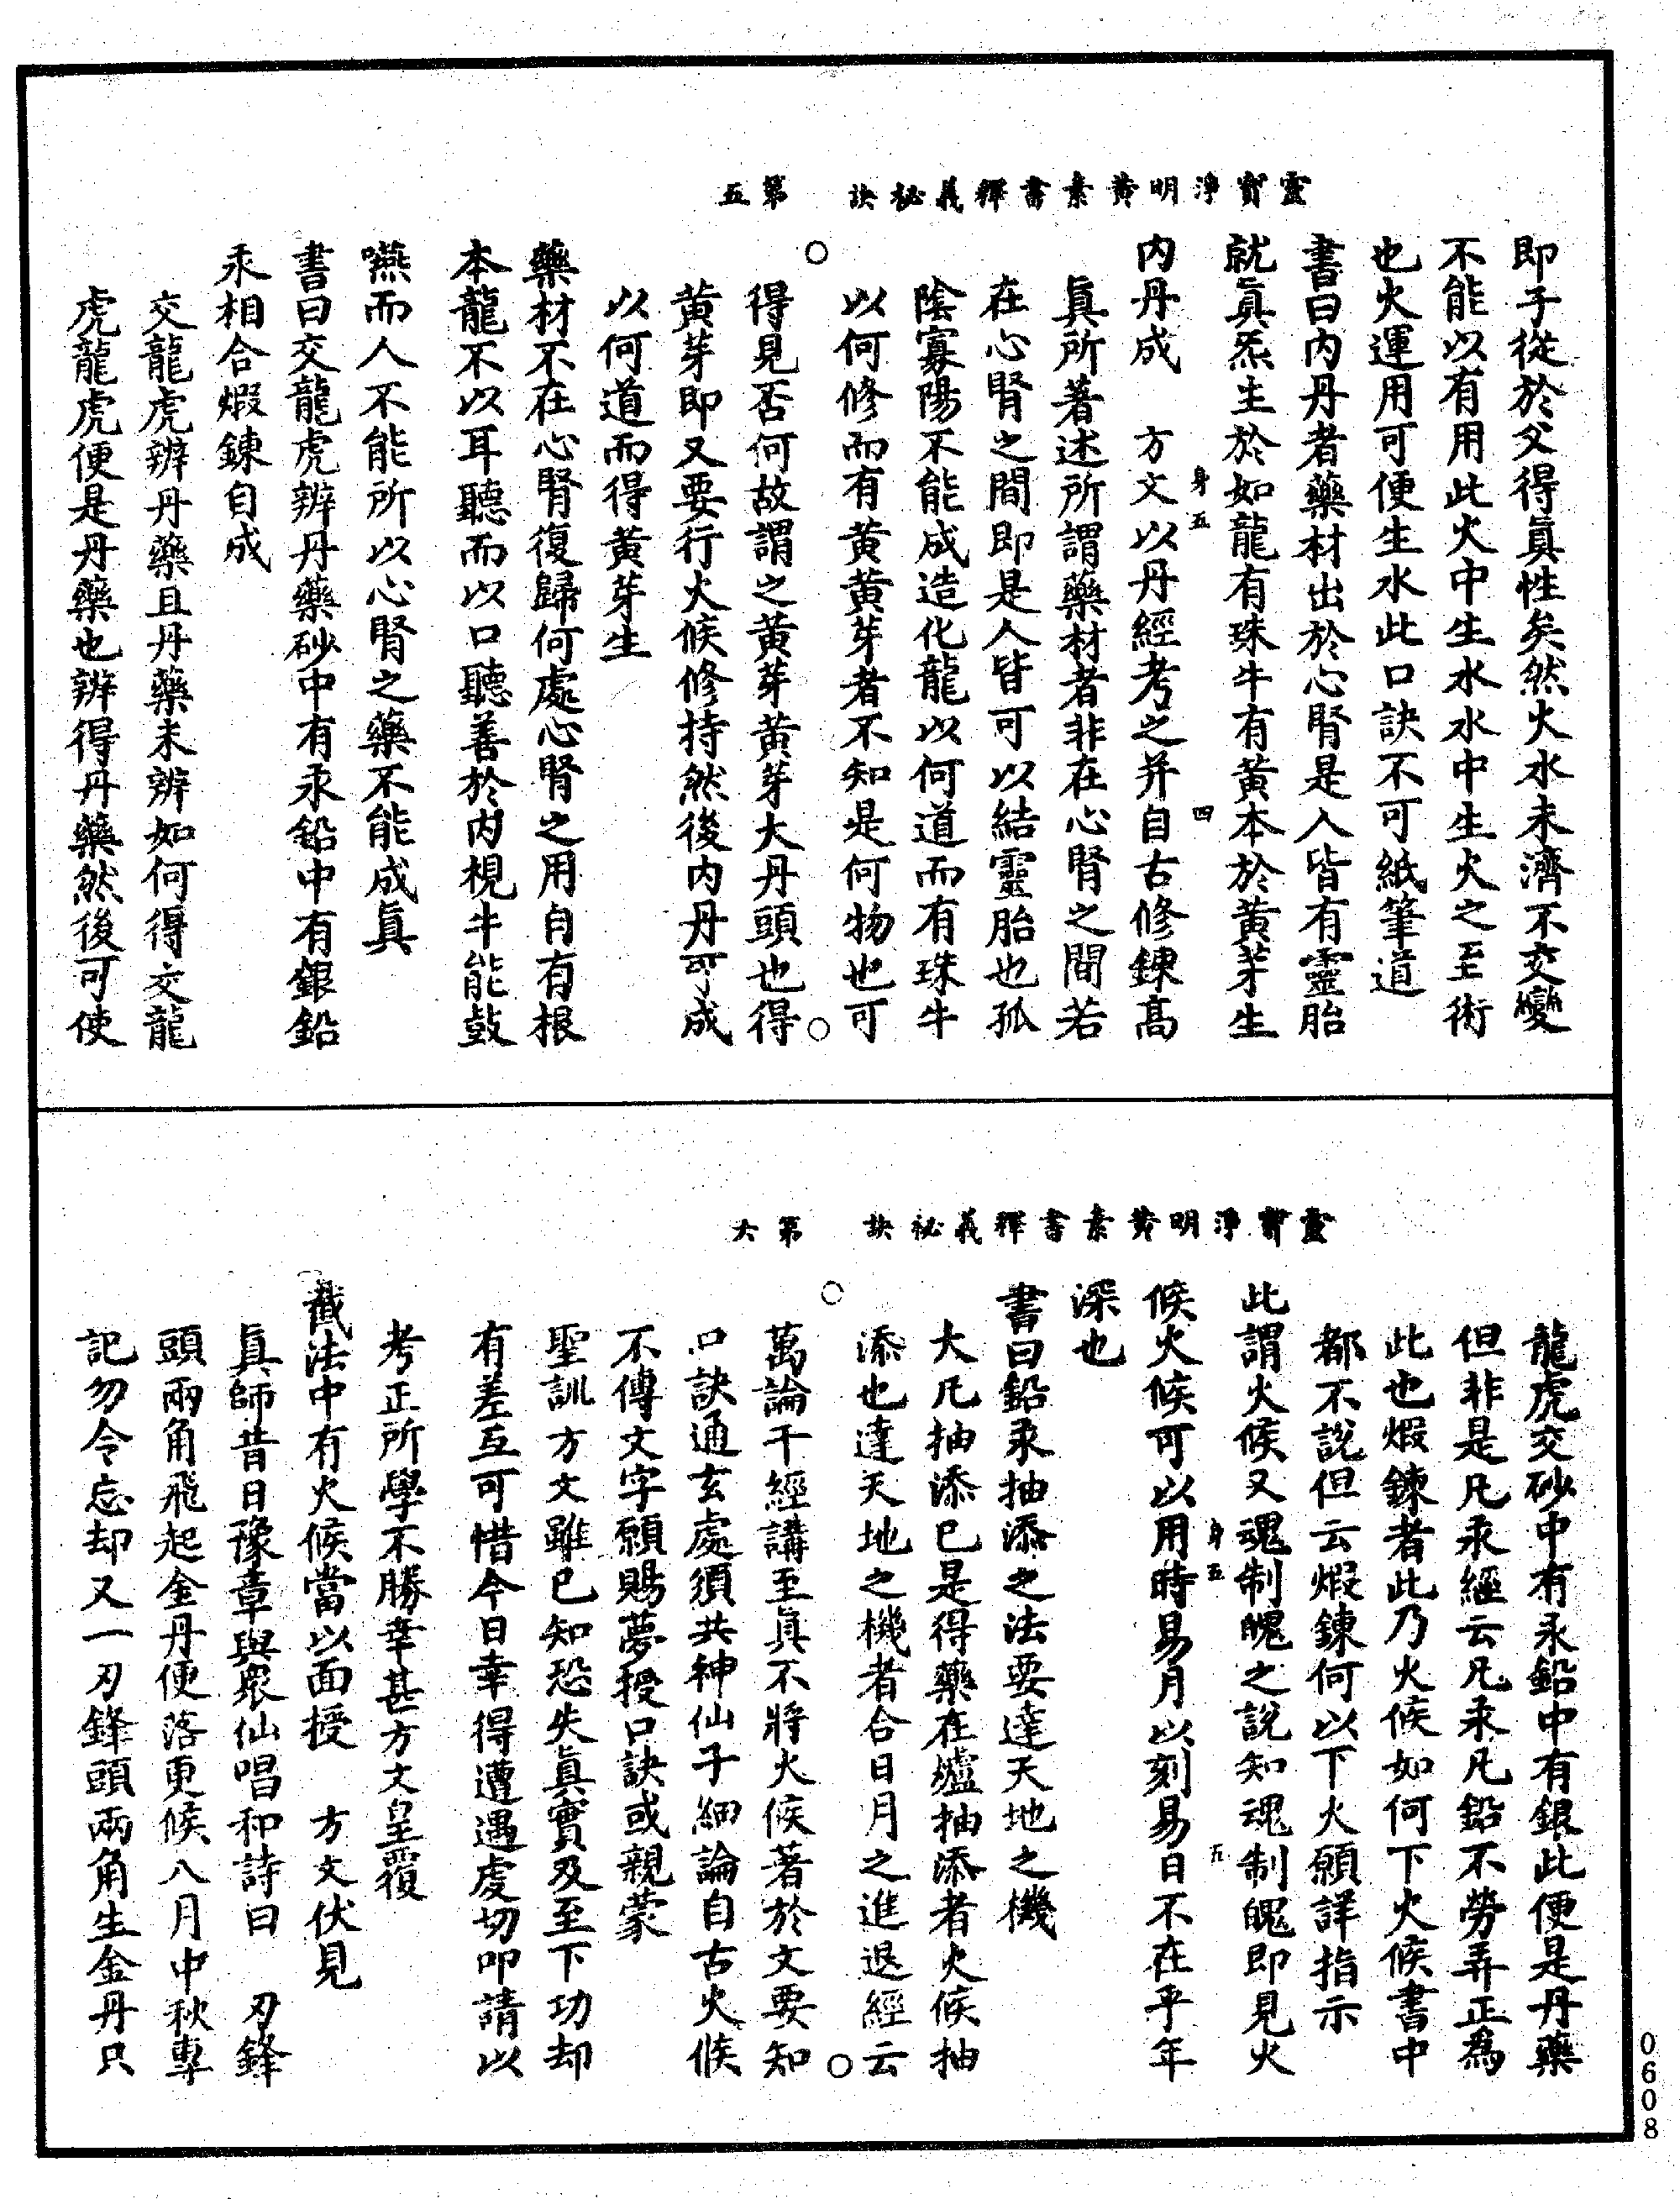 靈寶淨明黃素書釋義祕訣　第五
即子從於父得眞性矣然火水未濟不交變
不能以有用此火中生水水中生火之至術
也火運用可便生水此口訣不可紙筆道
書曰內丹者藥材出於心腎是人皆有靈胎
就眞炁生於如龍有珠牛有黃本於黃芽生
身五　四
內丹成　方文以丹經考之并自古修鍊高
眞所著述所謂藥材者非在心腎之間若
在心腎之間即是人皆可以結靈胎也孤
陰寡陽不能成造化龍以何道而有珠牛
以何修而有黃黃芽者不知是何物也可
得見否何故謂之黃芽黃芽大丹頭也得
黃芽即又要行火候修持然後內丹可成
以何道而得黃芽生
藥材不在心腎復歸何處心腎之用自有根
本龍不以耳聽而以口聽善於內視牛能鼓
嚥而人不能所以心腎之藥不能成眞
書曰交龍虎辨丹藥砂中有汞鉛中有銀鉛
汞相合煆鍊自成
交龍虎辨丹藥且丹藥未辨如何得交龍
虎龍虎便是丹藥也辨得丹藥然後可使
靈寶淨明黃素書釋義祕訣　第六
龍虎交砂中有汞鉛中有銀此便是丹藥
但非是凡汞經云凡汞凡鉛不勞弄正爲
此也煆鍊者此乃火候如何下火候書中
都不說但云煆鍊何以下火願詳指示
此謂火候又魂制魄之說知魂制魄即見火
身五　五
候火候可以用時易月以刻易日不在乎年
深也
書曰鉛汞抽添之法要達天地之機
大凡抽添已是得藥在爐抽添者火候抽
添也達天地之機者合日月之進退經云
萬論千經講至眞不將火候著於文要知
口訣通玄處須共神仙子細論自古火候
不傳文字願賜夢授口訣或親蒙
聖訓方文雖已知恐失眞實及至下功却
有差互可惜今日幸得遭遇虔切叩請以
考正所學不勝幸甚方文呈覆
截法中有火候當以面授　方文伏見
眞師昔日豫章與衆仙唱和詩曰　刃鋒
頭兩角飛起金丹便落更候八月中秋專
記勿令忘却又一刃鋒頭兩角生金丹只
0608